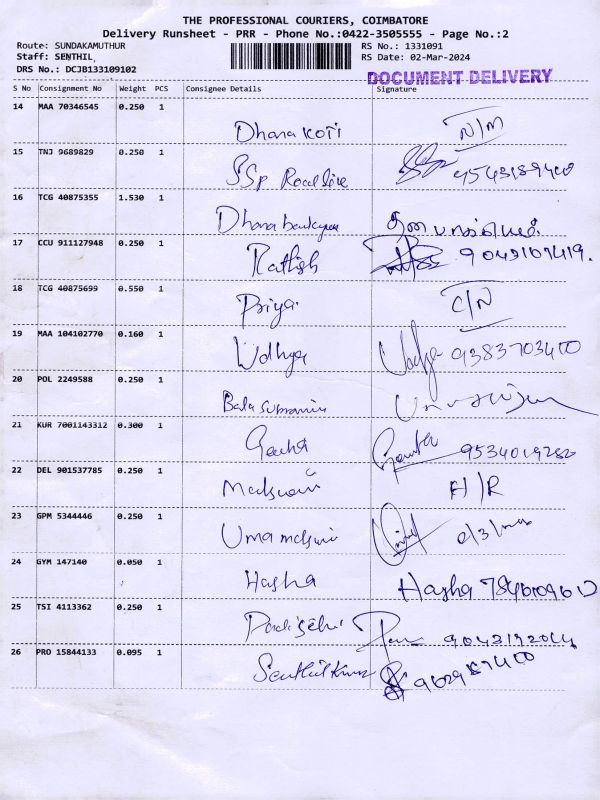 THE PROFESSIONAL COURIERS, COIMBATORE
Delivery Runsheet - PRR - Phone No.:0422-3505555 - Page No.:2
Route: SUNDAKAMUTHUR RS No.: 1331091
Staff: SENTHIL, RS Date: 02-Mar-2024
DRS No.: DCJB133109102
DOCUMENT DELIVERY
S No Consignment No Weight PCS Consignee Details Signature
14 MAA 70346545 0.250 1
Dhana Koti N/M
15 TNJ 9689829 0.250 1
SSp Roadline
16 TCG 40875355 1.530 1
Dhana
17 CCU 911127948 0.250 1
Rathish 9042107419.
18 TCG 40875699 0.550 1
Priya C/N
19 MAA 104102770 0.160 1
Vidhya 9383703400
20 POL 2249588 0.250 1
21 KUR 7001143312 0.300 1
Geetha 9534019282
22 DEL 901537785 0.250 1
H/R
23 GPM 5344446 0.250 1
Uma
24 GYM 147140 0.050 1
Hasha Hasha
25 TSI 4113362 0.250 1
26 PRO 15844133 0.095 1
Senthil Kumar